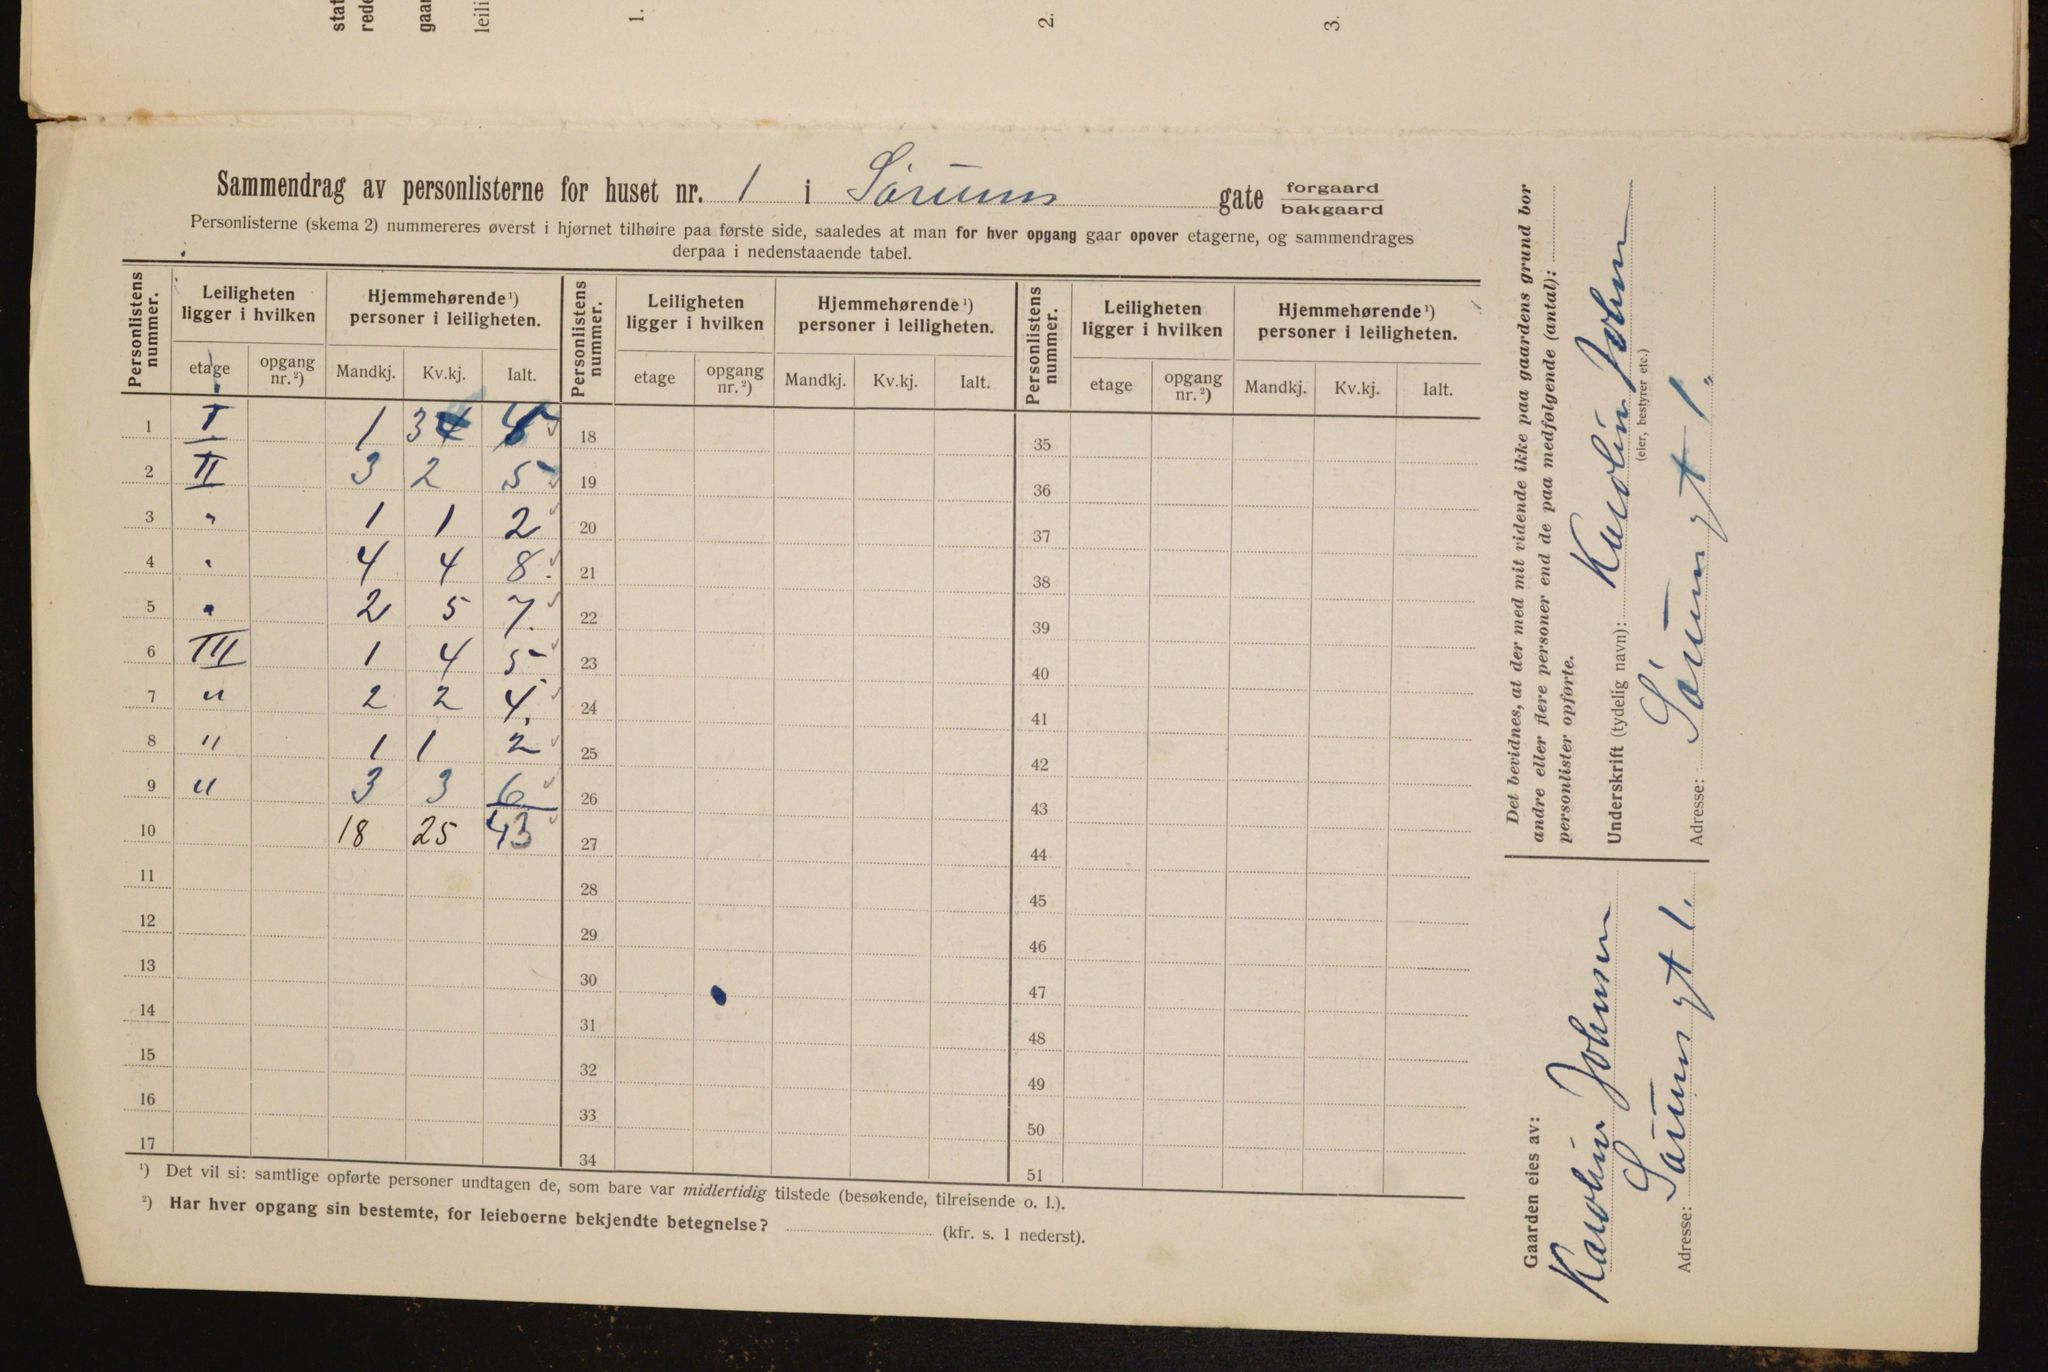 stat
rede
gaar
leili
1.
2.
3.
Sammendrag av personlisterne for huset nr. 1 i Sørums gate forgaard
bakgaard
Personlisterne (skema 2) nummereres øverst i hjørnet tilhøire paa første side, saaledes at man for hver opgang gaar opover etagerne, og sammendrages
derpaa i nedenstaaende tabel.
Personlistens nummer. Leiligheten ligger i hvilken Hjemmehørende¹) personer i leiligheten. Personlistens nummer. Leiligheten ligger i hvilken Hjemmehørende¹) personer i leiligheten. Personlistens nummer. Leiligheten ligger i hvilken Hjemmehørende¹) personer i leiligheten.
etage opgang nr.²) Mandkj. Kv.kj. Ialt. etage opgang nr.²) Mandkj. Kv.kj. Ialt. etage opgang nr.²) Mandkj. Kv.kj. Ialt.
1 I 1 3 4 18 35
2 II 3 2 5 19 36
3 " 1 1 2 20 37
4 " 4 4 8. 21 38
5 " 2 5 7. 22 39
6 III 1 4 5 23 40
7 " 2 2 4. 24 41
8 " 1 1 2 25 42
9 " 3 3 6 26 43
10 18 25 43 27 44
11 28 45
12 29 46
13 30 47
14 31 48
15 32 49
16 33 50
17 34 51
¹) Det vil si: samtlige opførte personer undtagen de, som bare var midlertidig tilstede (besøkende, tilreisende o. l.).
²) Har hver opgang sin bestemte, for leieboerne bekjendte betegnelse? (kfr. s. 1 nederst).
Det bevidnes, at der med mit vidende ikke paa gaardens grund bor
andre eller flere personer end de paa medfølgende (antal):
personlister opførte.
Underskrift (tydelig navn): Karolin Johnsen
(eier, bestyrer etc.)
Adresse: Sørums gt 1.
Gaarden eies av:
Karolin Johnsen
Adresse: Sørums gt 1.